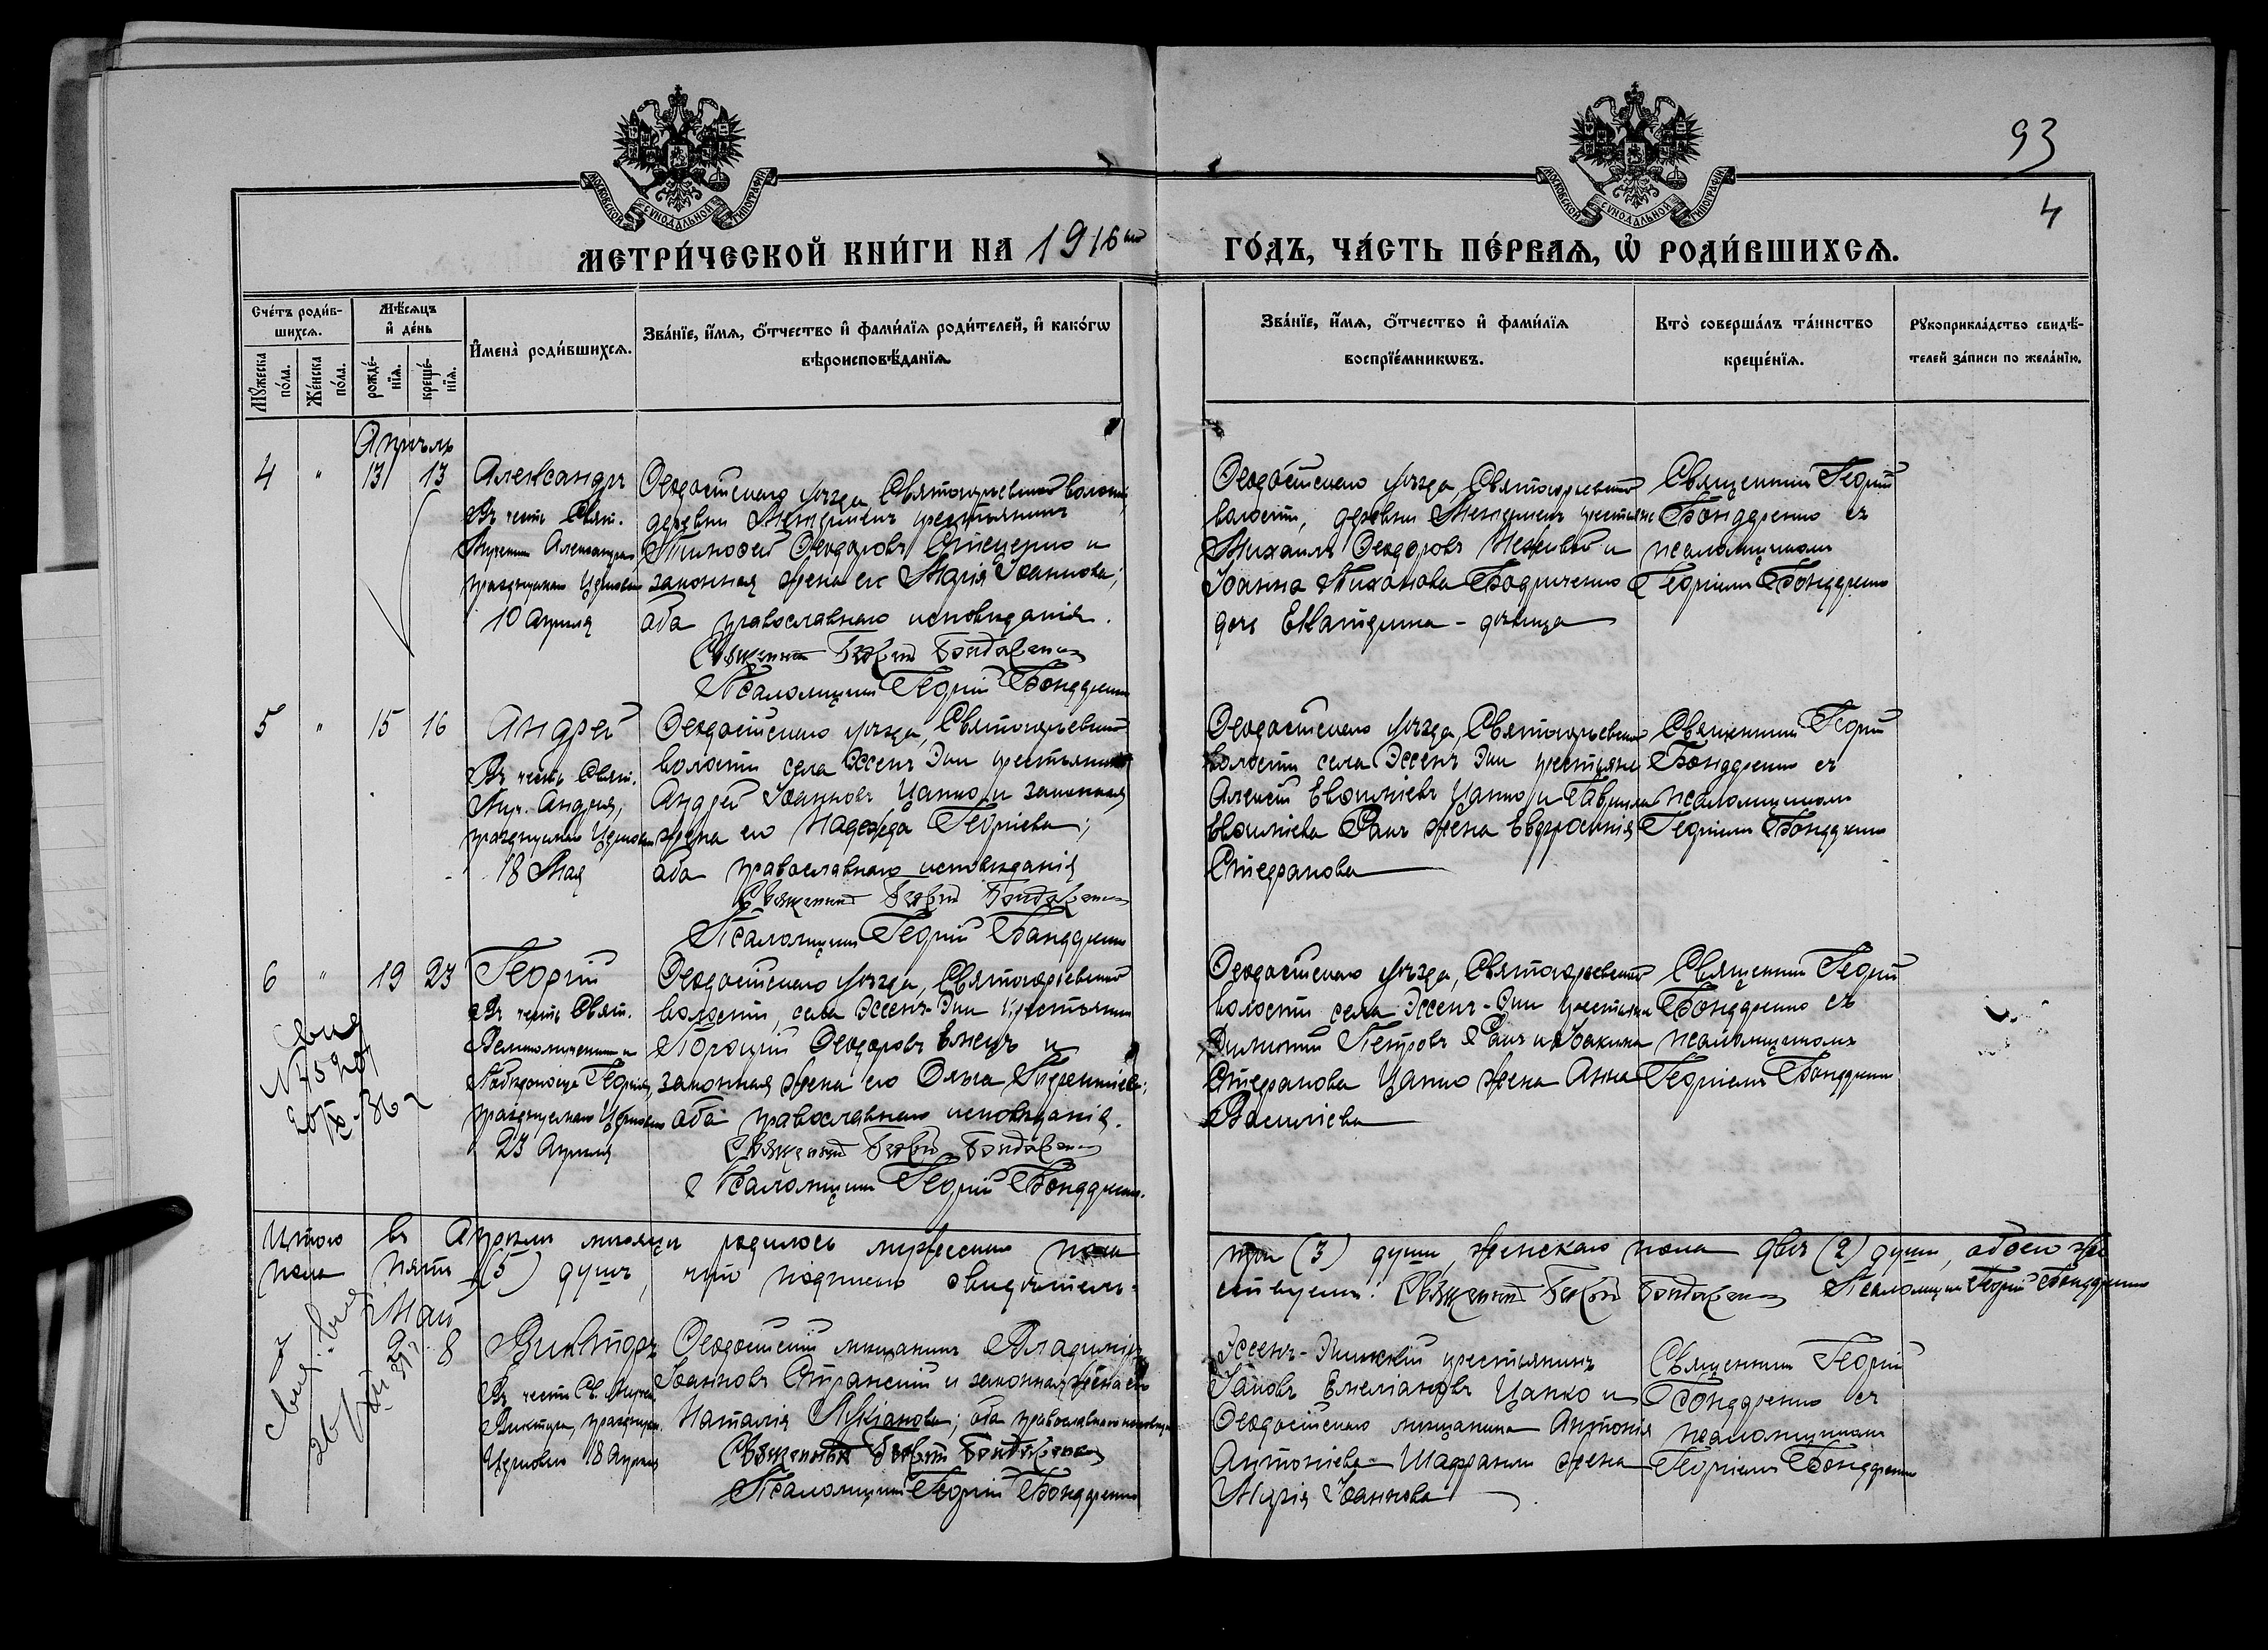 93
4
МОСКОВСКОЙ СѴНОДАЛЬНОЙ ТИПОГРАФІИ
МОСКОВСКОЙ СѴНОДАЛЬНОЙ ТИПОГРАФІИ
МЕТРИ́ЧЕСКОЙ КНИ́ГИ НА 1916 ый ГО́ДЪ, ЧА́СТЬ ПЕ́РВАѦ, Ѡ҆ РОДИ́ВШИХСѦ.
Сче́тъ роди́в-
шихсѧ.
Мꙋ́жеска по́ла.
Же́нска по́ла.
Мѣ́сѧцъ и҆ де́нь
рожде́-
нїѧ.
креще́-
нїѧ.
И҆мена̀ роди́вшихсѧ.
Зва́нїе, и҆́мѧ, ѻ҆́тчество и҆ фами́лїѧ роди́телей, и҆ како́гѡ
вѣроисповѣ́данїѧ
Зва́нїе, и҆́мѧ, ѻ҆́тчество и҆ фами́лїѧ
воспрїе́мникѡвъ.
Кто̀ соверша́лъ та́инство
креще́нїѧ.
Рꙋкоприкла́дство свидѣ́-
телей за́писи по жела́нїю.
Апрѣль
4 " 13 13 Александръ
Въ честь Свят.
Мученик Александра
празднуемаго Церковью
10 Апрѣля
Ѳеодосійскаго уѣзда Святогорьевской волости,
деревни крестьянинъ
Тимофей Ѳеодоровъ Стеценко и
законная жена его Марія Іоаннова;
оба православнаго исповѣданія.
Священникъ Георгій Бондаренко
Псаломщикъ Георгій Бондаренко
Ѳеодосійскаго уѣзда Святогорьевской
волости, деревни крестьяне
Михаилъ Ѳеодоровъ и
Іоанна Бодриченко
дочь Екатерина - дѣвица
Священникъ Георгій
Бондаренко съ
псаломщикомъ
Георгіемъ Бондаренко
5 " 15 16 Андрей
Въ честь Свят.
Муч. Андрея,
празднуемаго Церковью
18 Мая
Ѳеодосійскаго уѣзда, Святогорьевской
волости села Эссенъ Эки крестьянинъ
Андрей Іоанновъ Цапко и законная
жена его Надежда Георгіева;
оба православнаго исповѣданія
Священникъ Георгій Бондаренко
Псаломщикъ Георгій Бондаренко
Ѳеодосійскаго уѣзда, Святогорьевской
волости села Эссенъ Эки крестьяне
Алексій Цапко и Гавриила
жена Евдросинія
Стефанова
Священникъ Георгій
Бондаренко съ
псаломщикомъ
Георгіемъ Бондаренко
6 " 19 23 Георгій
Въ честь Свят.
Великомученика и
Побѣдоносца Георгія,
празднуемаго Церковью
23 Апрѣля
Ѳеодосійскаго уѣзда, Святогорьевской
волости, села Эссенъ-Эки крестьянинъ
Порфирій Ѳеодоровъ Емецъ и
законная жена его Ольга Терентіева;
оба православнаго исповѣданія.
Священникъ Георгій Бондаренко
Псаломщикъ Георгій Бондаренко.
Ѳеодосійскаго уѣзда, Святогорьевской
волости села Эссенъ-Эки крестьяне
Петровъ и Іоакима
Стефанова Цапко жена Анна
Василіева
Священникъ Георгій
Бондаренко съ
псаломщикомъ
Георгіемъ Бондаренко
Итого въ Апрѣлѣ мѣсяцѣ родилось мужескаго пола три (3) души, женскаго пола двѣ (2) души, обоего же
пола пять (5) душъ, что подписью свидѣтельствуемъ: Священникъ Георгій Бондаренко Псаломщикъ Георгій Бондаренко
Май
7 2 8 Викторъ
Въ честь Св. Мучен.
Виктора, праздну.
Церковью 18 Апрѣля
Ѳеодосійскій мѣщанинъ Владиміръ
Іоанновъ Странскій и законная жена его
Наталія Лукіанова; оба православнаго исповѣд.
Священникъ Георгій Бондаренко
Псаломщикъ Георгій Бондаренко
Эссенъ-Экинскій крестьянинъ
Іаковъ Емеліановъ Цапко и
Ѳеодосійскаго мѣщанина Антонія
Антоніева Шафрана жена
Марія Іоаннова
Священникъ Георгій
Бондаренко съ
псаломщикомъ
Георгіемъ Бондаренко